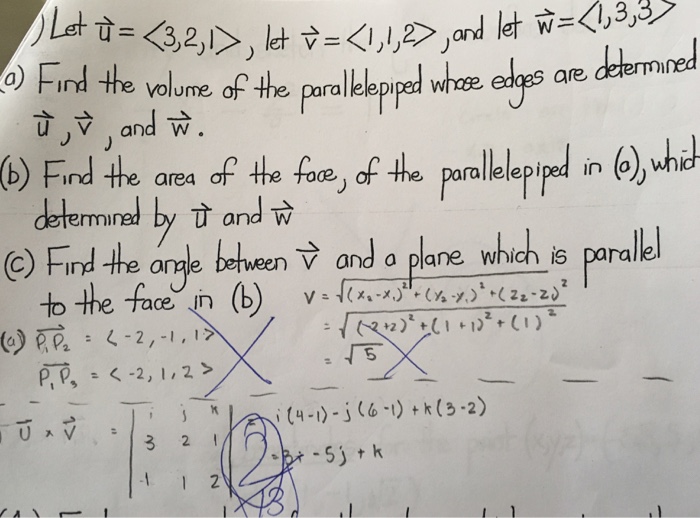 ) Let u⃗ = <3,2,1>, let v⃗ = <1,1,2>, and let w⃗ = <1,3,3>
(a) Find the volume of the parallelepiped whose edges are determined
u⃗, v⃗, and w⃗.
(b) Find the area of the face, of the parallelepiped in (a), which
determined by u⃗ and w⃗
(c) Find the angle between v⃗ and a plane which is parallel
to the face in (b)
V = √(x₂-x₁)² + (y₂-y₁)² + (z₂-z₁)²
(a) P₁P₂ = <-2,-1,1>
= √(-2+2)² + (1+1)² + (1)²
P₁P₃ = <-2,1,2>
= √5
u⃗ × v⃗ = | i j k | = i(4-1) - j(6-1) + k(3-2)
3 2 1
= 3i - 5j + k
-1 1 2
2
13